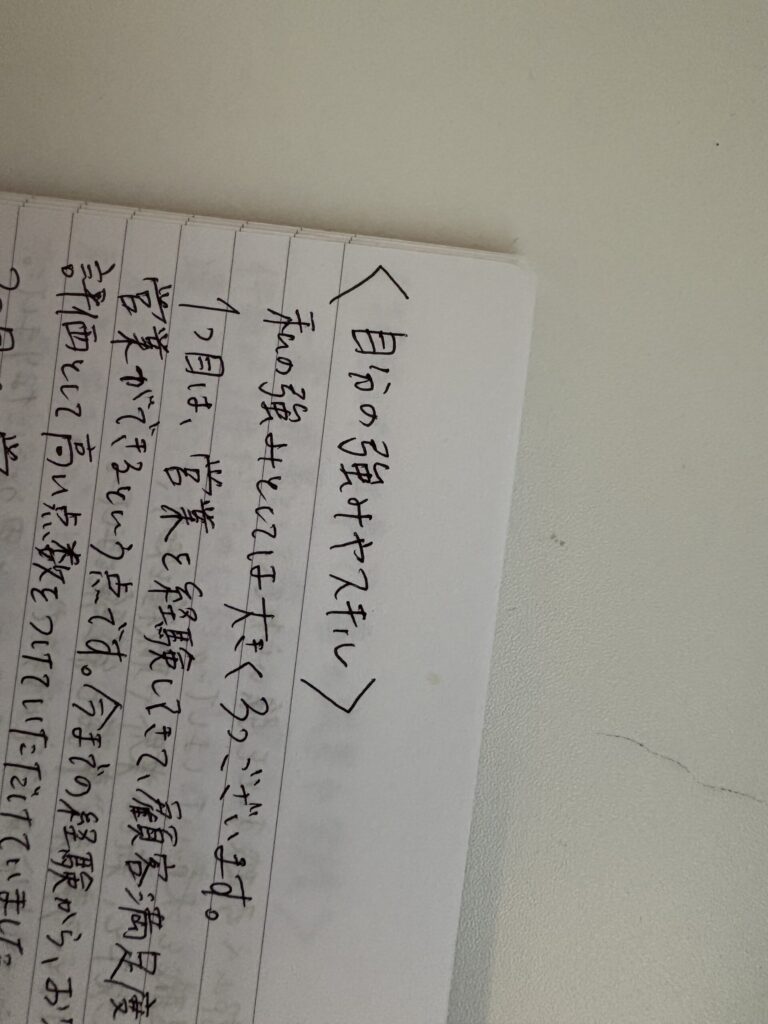 〈自分の強みやスキル〉
私の強みとしては大きく3つございます。
1つ目は、営業を経験してきて、顧客満足度
営業ができるという点です。今までの経験から、お
評価として高い点数をつけていただけていました
2つ目